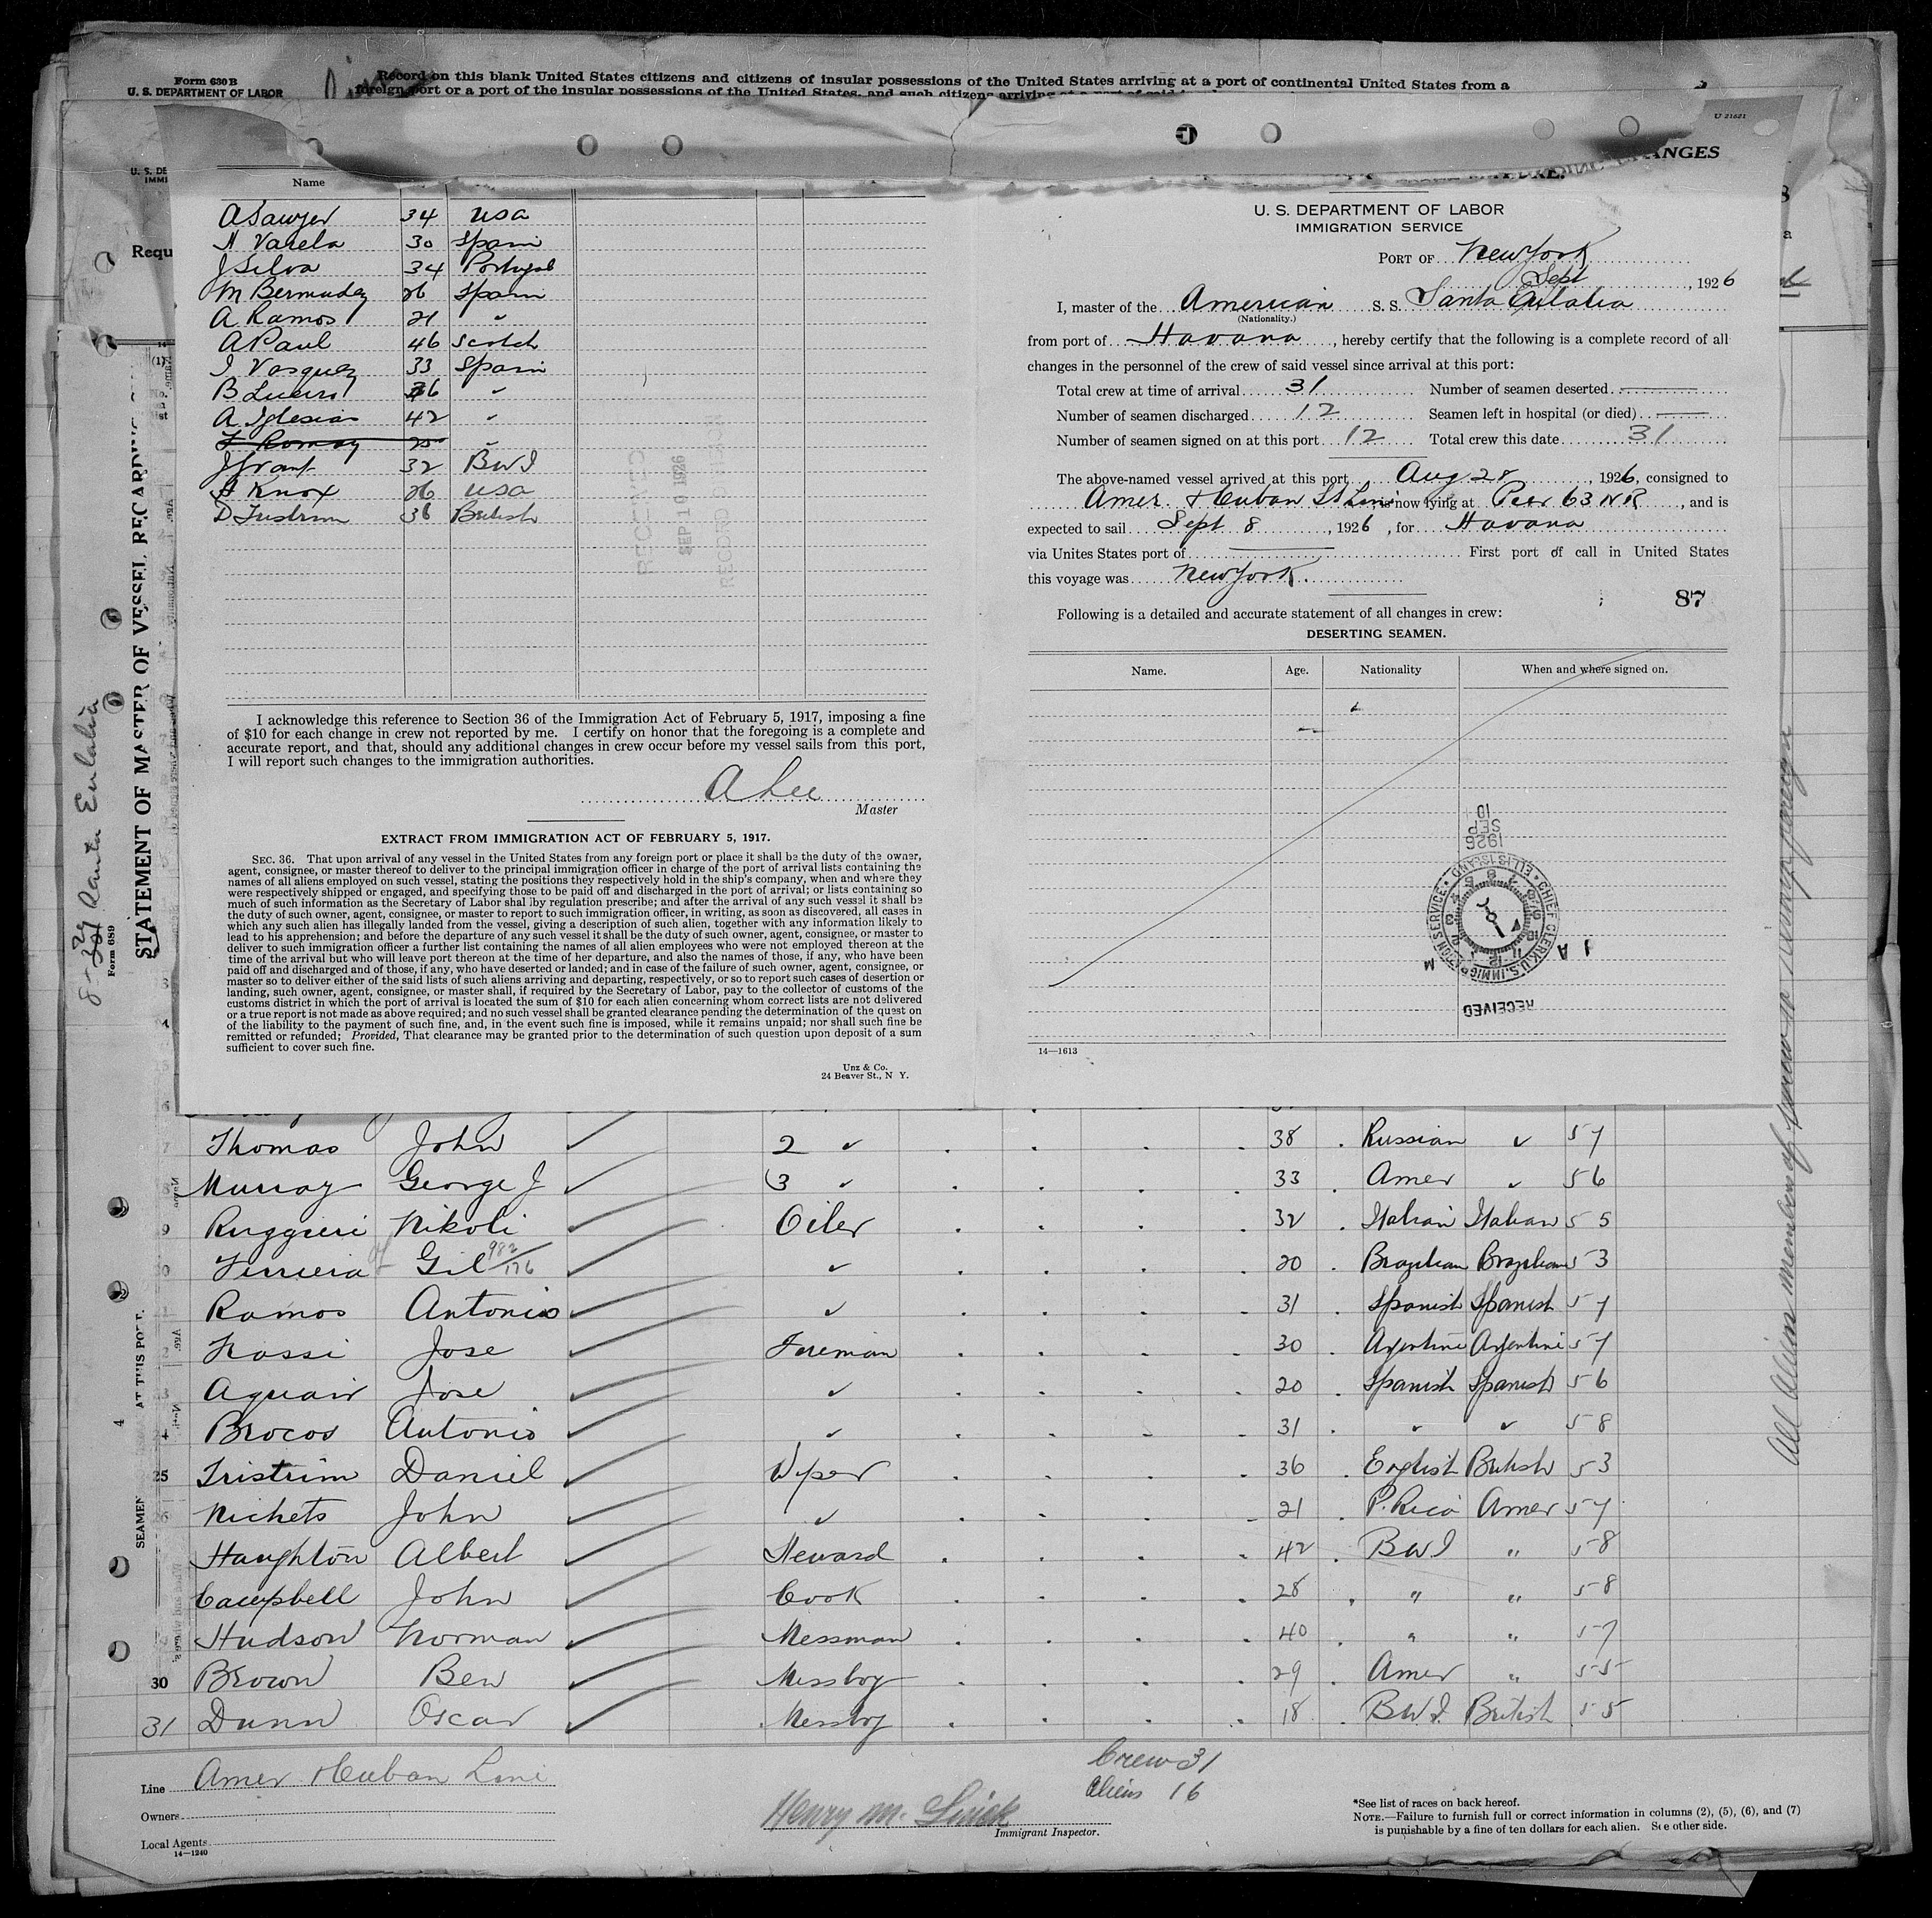 Form 630 B
U. S. DEPARTMENT OF LABOR
Record on this blank United States citizens and citizens of insular possessions of the United States arriving at a port of continental United States from a
foreign port or a port of the insular possessions of the United States, and such citizens arriving
U 21621
U. S. DE
IMMI
Requ
ANGES
Name
A Sawyer 34 USA
N Varela 30 Spain
J Silva 34 Portugal
M Bermudez 26 Spain
A Ramos 21 "
A Paul 46 Scotch
J Vasquez 33 Spain
B 36 "
A Iglesias 42 "
25 "
J Grant 32 BWI
A Knox 26 USA
D Tristrim 36 British
RECEIVED
SEP 10 1926
RECORD DIVISION
I acknowledge this reference to Section 36 of the Immigration Act of February 5, 1917, imposing a fine
of $10 for each change in crew not reported by me. I certify on honor that the foregoing is a complete and
accurate report, and that, should any additional changes in crew occur before my vessel sails from this port,
I will report such changes to the immigration authorities.
A Lee
Master
EXTRACT FROM IMMIGRATION ACT OF FEBRUARY 5, 1917.
SEC. 36. That upon arrival of any vessel in the United States from any foreign port or place it shall be the duty of the owner,
agent, consignee, or master thereof to deliver to the principal immigration officer in charge of the port of arrival lists containing the
names of all aliens employed on such vessel, stating the positions they respectively hold in the ship's company, when and where they
were respectively shipped or engaged, and specifying those to be paid off and discharged in the port of arrival; or lists containing so
much of such information as the Secretary of Labor shal lby regulation prescribe; and after the arrival of any such vessel it shall be
the duty of such owner, agent, consignee, or master to report to such immigration officer, in writing, as soon as discovered, all cases in
which any such alien has illegally landed from the vessel, giving a description of such alien, together with any information likely to
lead to his apprehension; and before the departure of any such vessel it shall be the duty of such owner, agent, consignee, or master to
deliver to such immigration officer a further list containing the names of all alien employees who were not employed thereon at the
time of the arrival but who will leave port thereon at the time of her departure, and also the names of those, if any, who have been
paid off and discharged and of those, if any, who have deserted or landed; and in case of the failure of such owner, agent, consignee, or
master so to deliver either of the said lists of such aliens arriving and departing, respectively, or so to report such cases of desertion or
landing, such owner, agent, consignee, or master shall, if required by the Secretary of Labor, pay to the collector of customs of the
customs district in which the port of arrival is located the sum of $10 for each alien concerning whom correct lists are not delivered
or a true report is not made as above required; and no such vessel shall be granted clearance pending the determination of the quest on
of the liability to the payment of such fine, and, in the event such fine is imposed, while it remains unpaid; nor shall such fine be
remitted or refunded; Provided, That clearance may be granted prior to the determination of such question upon deposit of a sum
sufficient to cover such fine.
Unz & Co.
24 Beaver St., N Y.
U. S. DEPARTMENT OF LABOR
IMMIGRATION SERVICE
PORT OF New York
Sept , 1926
I, master of the American S. S. Santa Eulalia
(Nationality.)
from port of Havana , hereby certify that the following is a complete record of all
changes in the personnel of the crew of said vessel since arrival at this port:
Total crew at time of arrival 31 Number of seamen deserted
Number of seamen discharged 12 Seamen left in hospital (or died)
Number of seamen signed on at this port 12 Total crew this date 31
The above-named vessel arrived at this port Aug 28 , 1926, consigned to
Amer & Cuban SS Line now lying at Pier 63 NR , and is
expected to sail Sept 8 , 1926 , for Havana
via Unites States port of First port of call in United States
this voyage was New York.
87
Following is a detailed and accurate statement of all changes in crew:
DESERTING SEAMEN.
Name. Age. Nationality When and where signed on.
1926 SEP 10
CHIEF CLERK U.S. IMMIGRATION SERVICE ELLIS ISLAND
RECEIVED
14—1613
8-29 Santa Eulalia
Form 689
STATEMENT OF MASTER OF VESSEL REGARDING
SEAMEN AT THIS PORT.
All Aliens members of crew
Thomas John 2 " 38 Russian " 57
Murray George J 3 " 33 Amer " 56
Ruggieri Nikoli Oiler 32 Italian Italian 55
Ferreira Gil 982/176 " 20 Brazilian Brazilian 53
Ramos Antonio " 31 Spanish Spanish 57
Rossi Jose Fireman 30 Argentine Argentine 57
Aguair Jose " 20 Spanish Spanish 56
Brocos Antonio " 31 " " 58
25 Tristrim Daniel Wiper 36 English British 53
26 Nichets John " 21 P. Rico Amer 57
Haughton Albert Steward 42 BWI " 58
Campbell John Cook 28 " " 58
Hudson Norman Messman 40 " " 57
30 Brown Ben Messboy 29 Amer " 55
31 Dunn Oscar Messboy 18 BWI British 55
Line Amer & Cuban Line
Owners
Local Agents
14—1240
Crew 31
Aliens 16
Henry M.
Immigrant Inspector.
*See list of races on back hereof.
NOTE.—Failure to furnish full or correct information in columns (2), (5), (6), and (7)
is punishable by a fine of ten dollars for each alien. See other side.